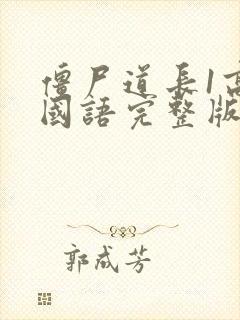 僵尸道长1高
國語完整版
郭成芳